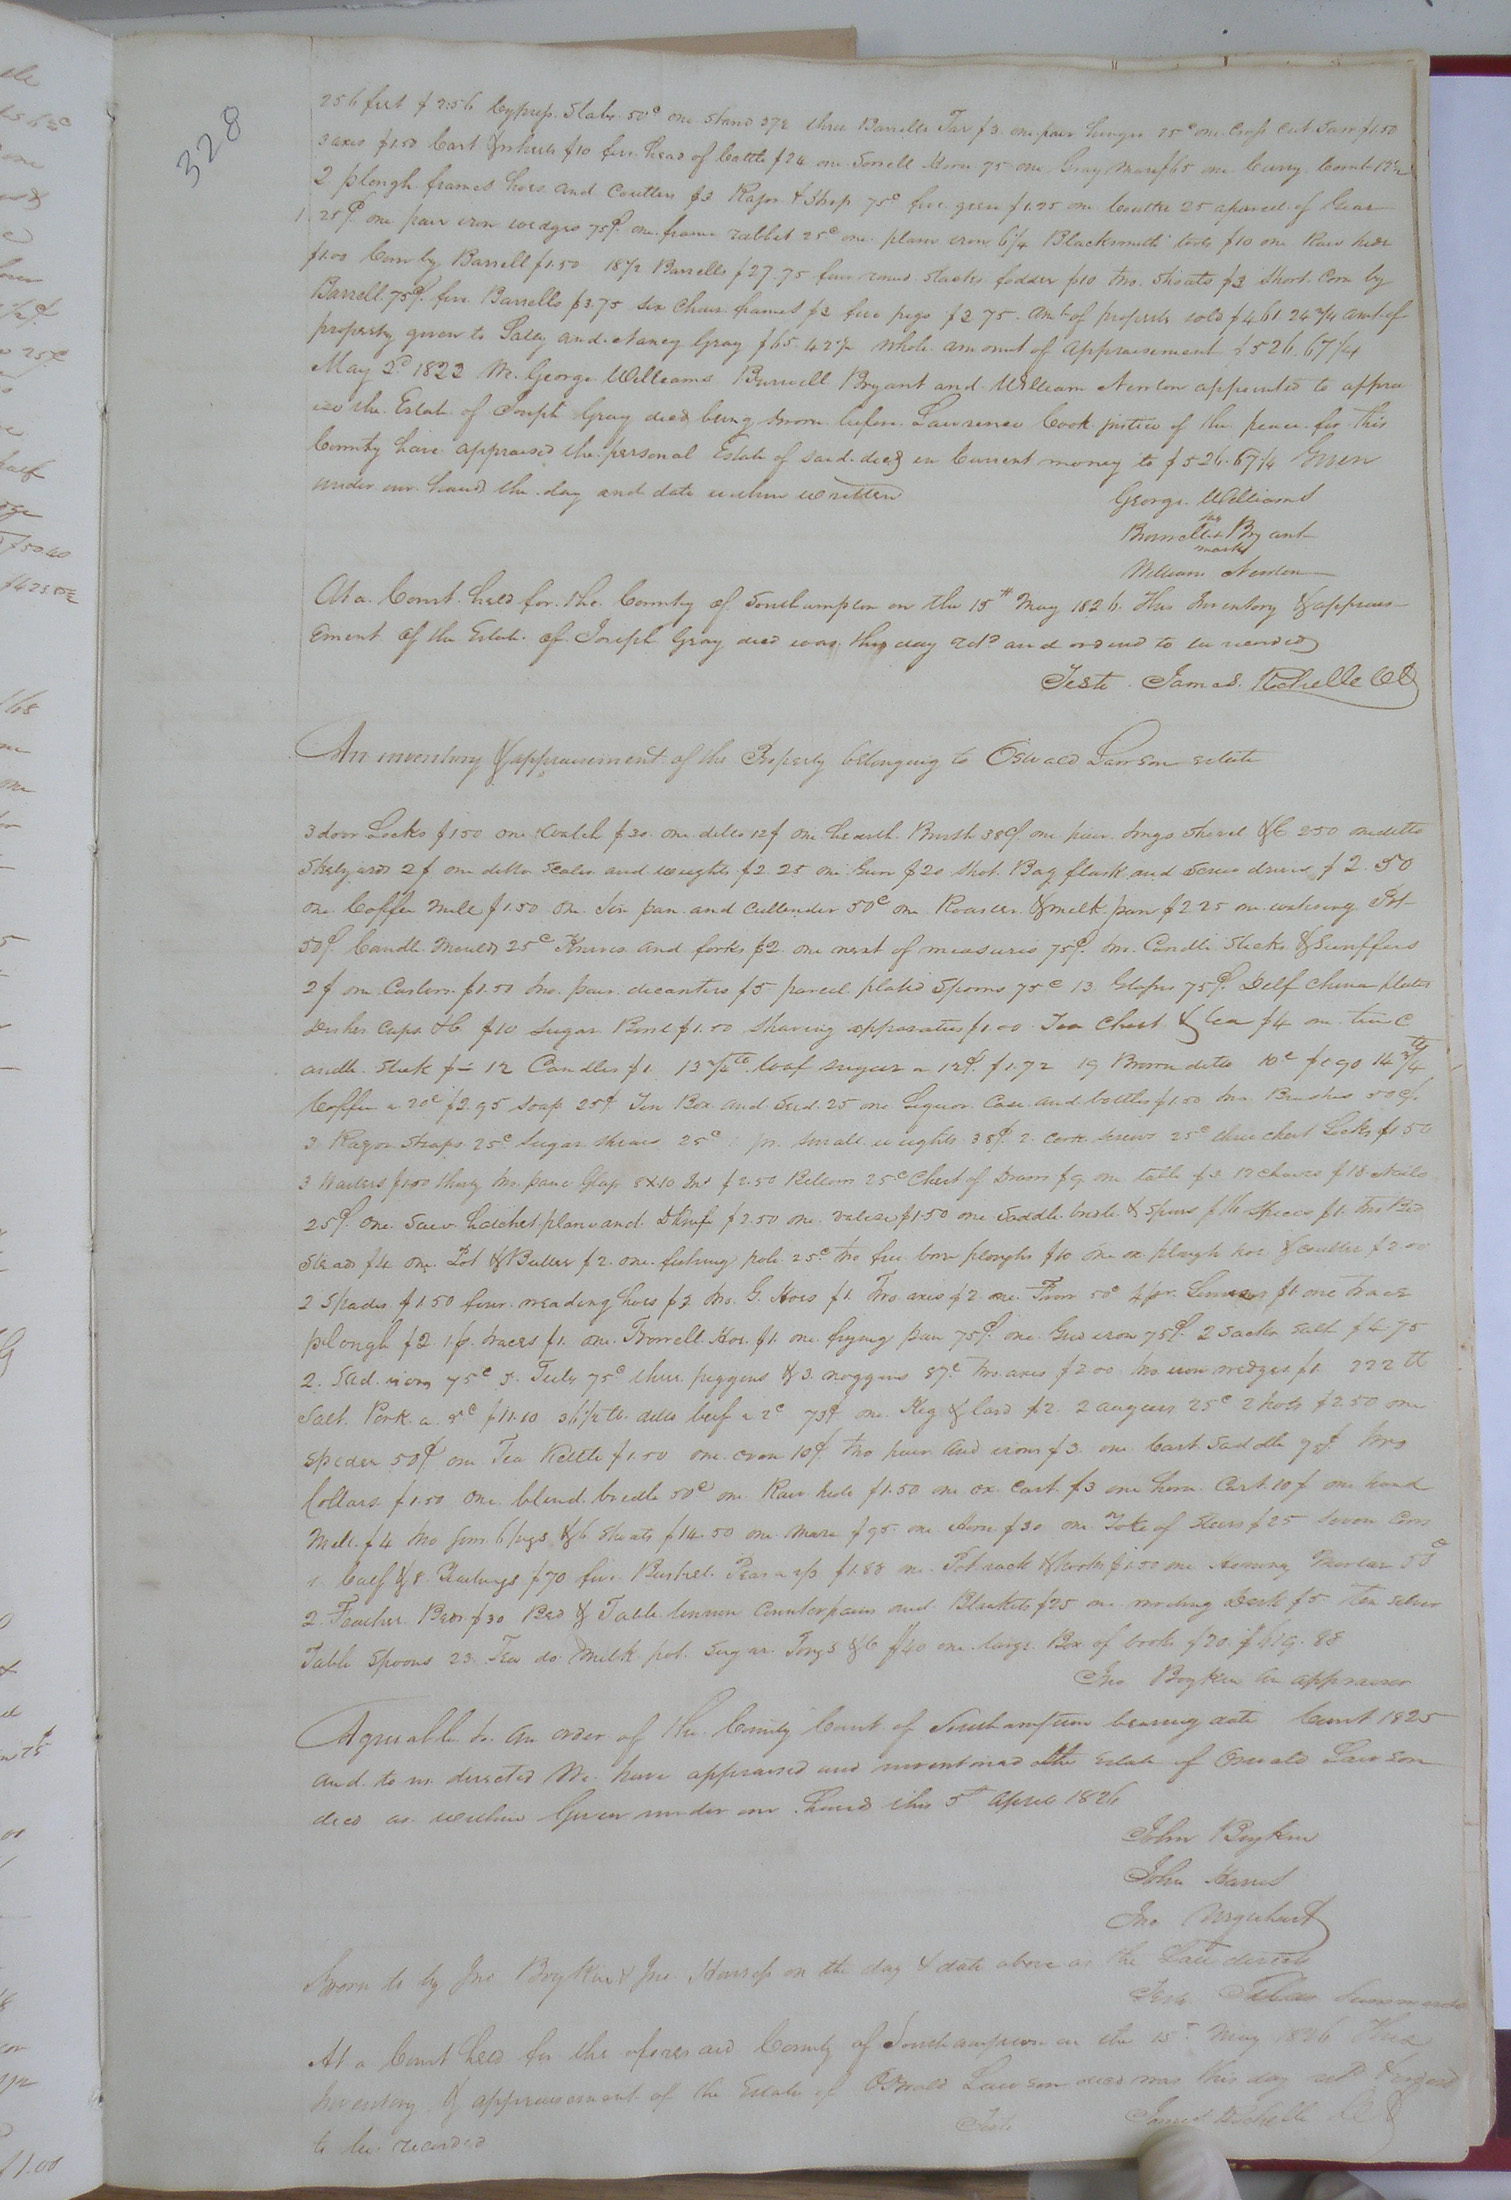 328
256 feet $2.56 Cypress Slabs 50c one Stand 37½ three Barrells Tar $3 one pair hinges 75c one Cross Cut Saw $1.50
3 axes $1.50 Cart & wheels $10 five head of Cattle $24 one Sorrell Horse 75 one Gray Mare $65 one Curry Comb 12½
2 plough frames hoes and Coulters $3 Razor & Strop 75c five geese $1.25 one Coulter 25 a parcel of Gear
25c one pair iron wedges 75c one frame rabbit 25c one plane iron 6¼ Blacksmith tools $10 one Raw hide
$1.00 Corn by Barrell $1.50 18½ Barrells $27.75 four round Stacks fodder $10 two Shoats $3 Short Corn by
Barrell 75c five Barrells $3.75 six Chair frames $3 five pigs $3.75 Amt of property sold $461.24¾ amt of
property given to Sally and Nancy Gray $65.42½ whole amount of appraisement $526.67¼
May 2d 1822 We George Williams Burwell Bryant and William Newton appointed to apprai
ise the Estate of Joseph Gray decd being sworn before Lawrence Cook justice of the peace for this
County have appraised the personal Estate of said decd in Current money to $526.67¼ Given
under our hands the day and date within written
George Williams
his
Burwell + Bryant
mark
William Newton
At a Court held for the County of Southampton on the 15th May 1826 This Inventory & apprais
ement of the Estate of Joseph Gray decd was this day retd and ordered to be recorded
Teste James Rochelle CC
An inventory & appraisement of the Property belonging to Oswald Lawson estate
3 door Locks $1.50 one Watch $30 one ditto 12$ one hearth Brush 38c one pair tongs Shovel &C 2.50 one ditto
Stelyards 2$ one ditto Scales and weights $2.25 one Gun $20 Shot Bag flask and Screw driver $2.50
one Coffee Mill $1.50 one Tin pan and Cullender 50c one Roaster & milk pan $2.25 one watering Pot
50c Candle Moulds 25c Knives and forks $2 one nest of measures 75c two Candle Sticks & Snuffers
2$ one Castors $1.50 two pair decanters $5 parcel plated Spoons 75c 13 Glasses 75c Delf China plates
dishes Cups &C $10 Sugar Bowl $1.50 Shaving apparatus $1.00 Tea Chest & tea $4 one tin C
andle Stick 12 Candles $1 13¾ lb loaf sugar a 12c $1.72 19 Brown ditto 10c $1.90 14¾ lb
Coffee a 20c $2.95 soap 25c Tin Box and Seed 25 one Liquor Case and bottles $1.50 two Brushes 50c
3 Razor Straps 25c Sugar Shears 25c pr. small weights 38c 2 cork screws 25c three chest Locks $1.50
3 Waiters $1.00 thirty two pane Glass 8x10 Ins $2.50 Bellows 25c Chest of Draws $9 one table $3 12 Chairs $18 Nails
25c one Saw hatchet plane and Knife $2.50 one valise $1.50 one Saddle bridle & Spurs $16 Spices $1 two Bed
Steads $4 one Pot & Butter $2 one fishing pole 25c two free born ploughs $10 one ox plough hoe & coulter $2.00
2 Spades $1.50 four weading hoes $2 two G. Hoes $1 Two axes $2 one 50c 4 pr. $1 one trace
plough $2 1 pr. traces $1 one Trowell Hoe $1 one frying pan 75c one Grid iron 75c 2 Sacks Salt $4.95
2 Sad irons 75c 3 Tubs 75c three piggins & 3 noggins 87c two axes $2.00 two iron wedges $1 222 lb
Salt Pork a 5c $11.10 36½ lb ditto beef a 2c 73c one Keg & lard $2 2 augurs 25c 2 pots $2.50 one
Spider 50c one Tea Kettle $1.50 one oven 10c two pair And irons $3 one Cart Saddle 90c two
Collars $1.50 one blind bridle 50c one Raw hide $1.50 one ox Cart $3 one horse Cart 10$ one hand
Mill $4 two Sows 6 pigs & 6 Shoats $14.50 one Mare $95 one Horse $30 one Yoke of Steers $25 Seven Cows
1 Calf & 8 Yearlings $70 five Bushels Peas $1.88 one Pot rack & hooks $1.50 one Hominy Mortar 50c
2 Feather Beds $30 Bed & Table linnen Counterpains and Blankets $25 one writing Desk $5 ten silver
Table Spoons 23 Tea do Milk pot Sugar Tongs &C $40 one large Box of books $20 $419.88
Jno Boykin an appraiser
Agreable to an order of the County Court of Southampton bearing date Court 1825
and to us directed We have appraised and inventoried the Estate of Oswald Lawson
decd as within Given under our hands this 5th April 1826
John Boykin
John Harris
Jno Urquhart
Sworn to by Jno Boykin & Jno Harris on the day & date above as the Law directs
Teste Summerell
At a Court held for the aforesaid County of Southampton on the 15th May 1826 This
Inventory & appraisement of the Estate of Oswald Lawson decd was this day retd & ordered
to be recorded
Teste James Rochelle CC